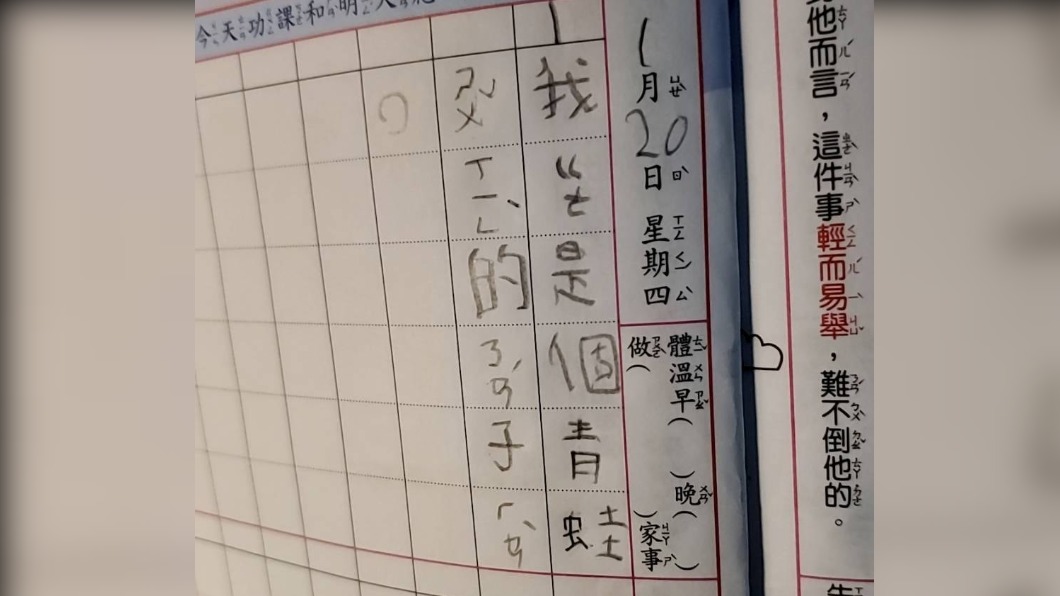 他而言，這件事輕而易舉，難不倒他的。
今天功課和明
1月20日星期四
體溫早（ ）晚（ ）
做（ ）家事
我ㄍㄜ是個青蛙
ㄋㄡㄒㄧㄥ的ㄋㄢ子ㄏㄢ
。